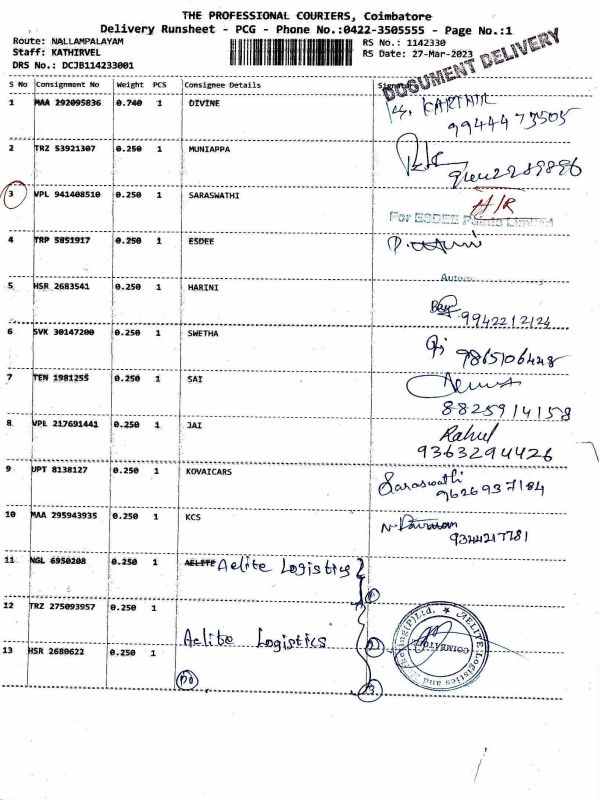 THE PROFESSIONAL COURIERS, Coimbatore
Delivery Runsheet - PCG - Phone No.:0422-3505555 - Page No.:1
Route: NALLAMPALAYAM
Staff: KATHIRVEL
DRS No.: DCJB114233001
RS No.: 1142330
RS Date: 27-Mar-2023
DOCUMENT DELIVERY
S No Consignment No Weight PCS Consignee Details
1 MAA 292095836 0.740 1 DIVINE
9944473505
2 TRZ 53921307 0.250 1 MUNIAPPA
3 VPL 941408510 0.250 1 SARASWATHI
H/R
For ESDEE Paints Limited
4 TRP 5851917 0.250 1 ESDEE
5 HSR 2683541 0.250 1 HARINI
9942212124
6 SVK 30147200 0.250 1 SWETHA
9865106448
7 TEN 1981255 0.250 1 SAI
8825914158
8 VPL 217691441 0.250 1 JAI
Rahul
9363294426
9 UPT 8138127 0.250 1 KOVAICARS
Saraswathi
9626937184
10 MAA 295943935 0.250 1 KCS
9344217781
11 NGL 6950208 0.250 1 AELITE Aelite Logistics
12 TRZ 275093957 0.250 1
Aelite Logistics
13 HSR 2680622 0.250 1
COIMBATORE